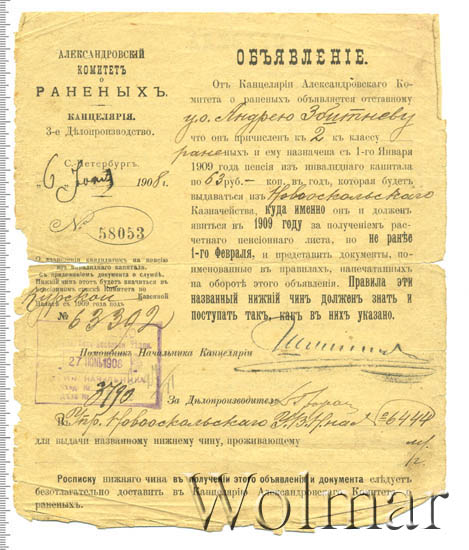 АЛЕКСАНДРОВСКІЙ
КОМИТЕТЪ
о
РАНЕНЫХЪ.
КАНЦЕЛЯРІЯ.
3-е Дѣлопроизводство.
С.-Петербургъ.
„6 1908 г.
№ 58053
О назначеніи кандидатомъ на пенсію
изъ инвалиднаго капитала.
Съ приложеніемъ документа о службѣ.
Нижній чинъ этотъ будетъ значиться въ
пенсіонномъ спискѣ Комитета по
Курской Казенной
Палатѣ съ 1909 года подъ
№ 63302
ОБЪЯВЛЕНІЕ.
Отъ Канцеляріи Александровскаго Ко-
митета о раненыхъ объявляется отставному
у.о. Андрею Збитневу
что онъ причисленъ къ 2 классу
раненыхъ и ему назначена съ 1-го Января
1909 года пенсія изъ инвалиднаго капитала
по 63 руб.— коп. въ годъ, которая будетъ
выдаваться изъ Новооскольскаго
Казначейства, куда именно онъ и долженъ
явиться въ 1909 году за полученіемъ рас-
четнаго пенсіоннаго листа, но не ранѣе
1-го Февраля, и представить документы, по-
именованные въ правилахъ, напечатанныхъ
на оборотѣ этого объявленія. Правила эти
названный нижній чинъ долженъ знать и
поступать такъ, какъ въ нихъ указано.
Помощникъ Начальника Канцеляріи
27 ІЮН 1908
3790
За Дѣлопроизводителя
Къ Новооскольскаго У.В. Нач. № 6444
для выдачи названному нижнему чину, проживающему
Росписку нижняго чина въ полученіи этого объявленія и документа слѣдуетъ
безотлагательно доставить въ Канцелярію Александровскаго Комитета о
раненыхъ.
Wolmar